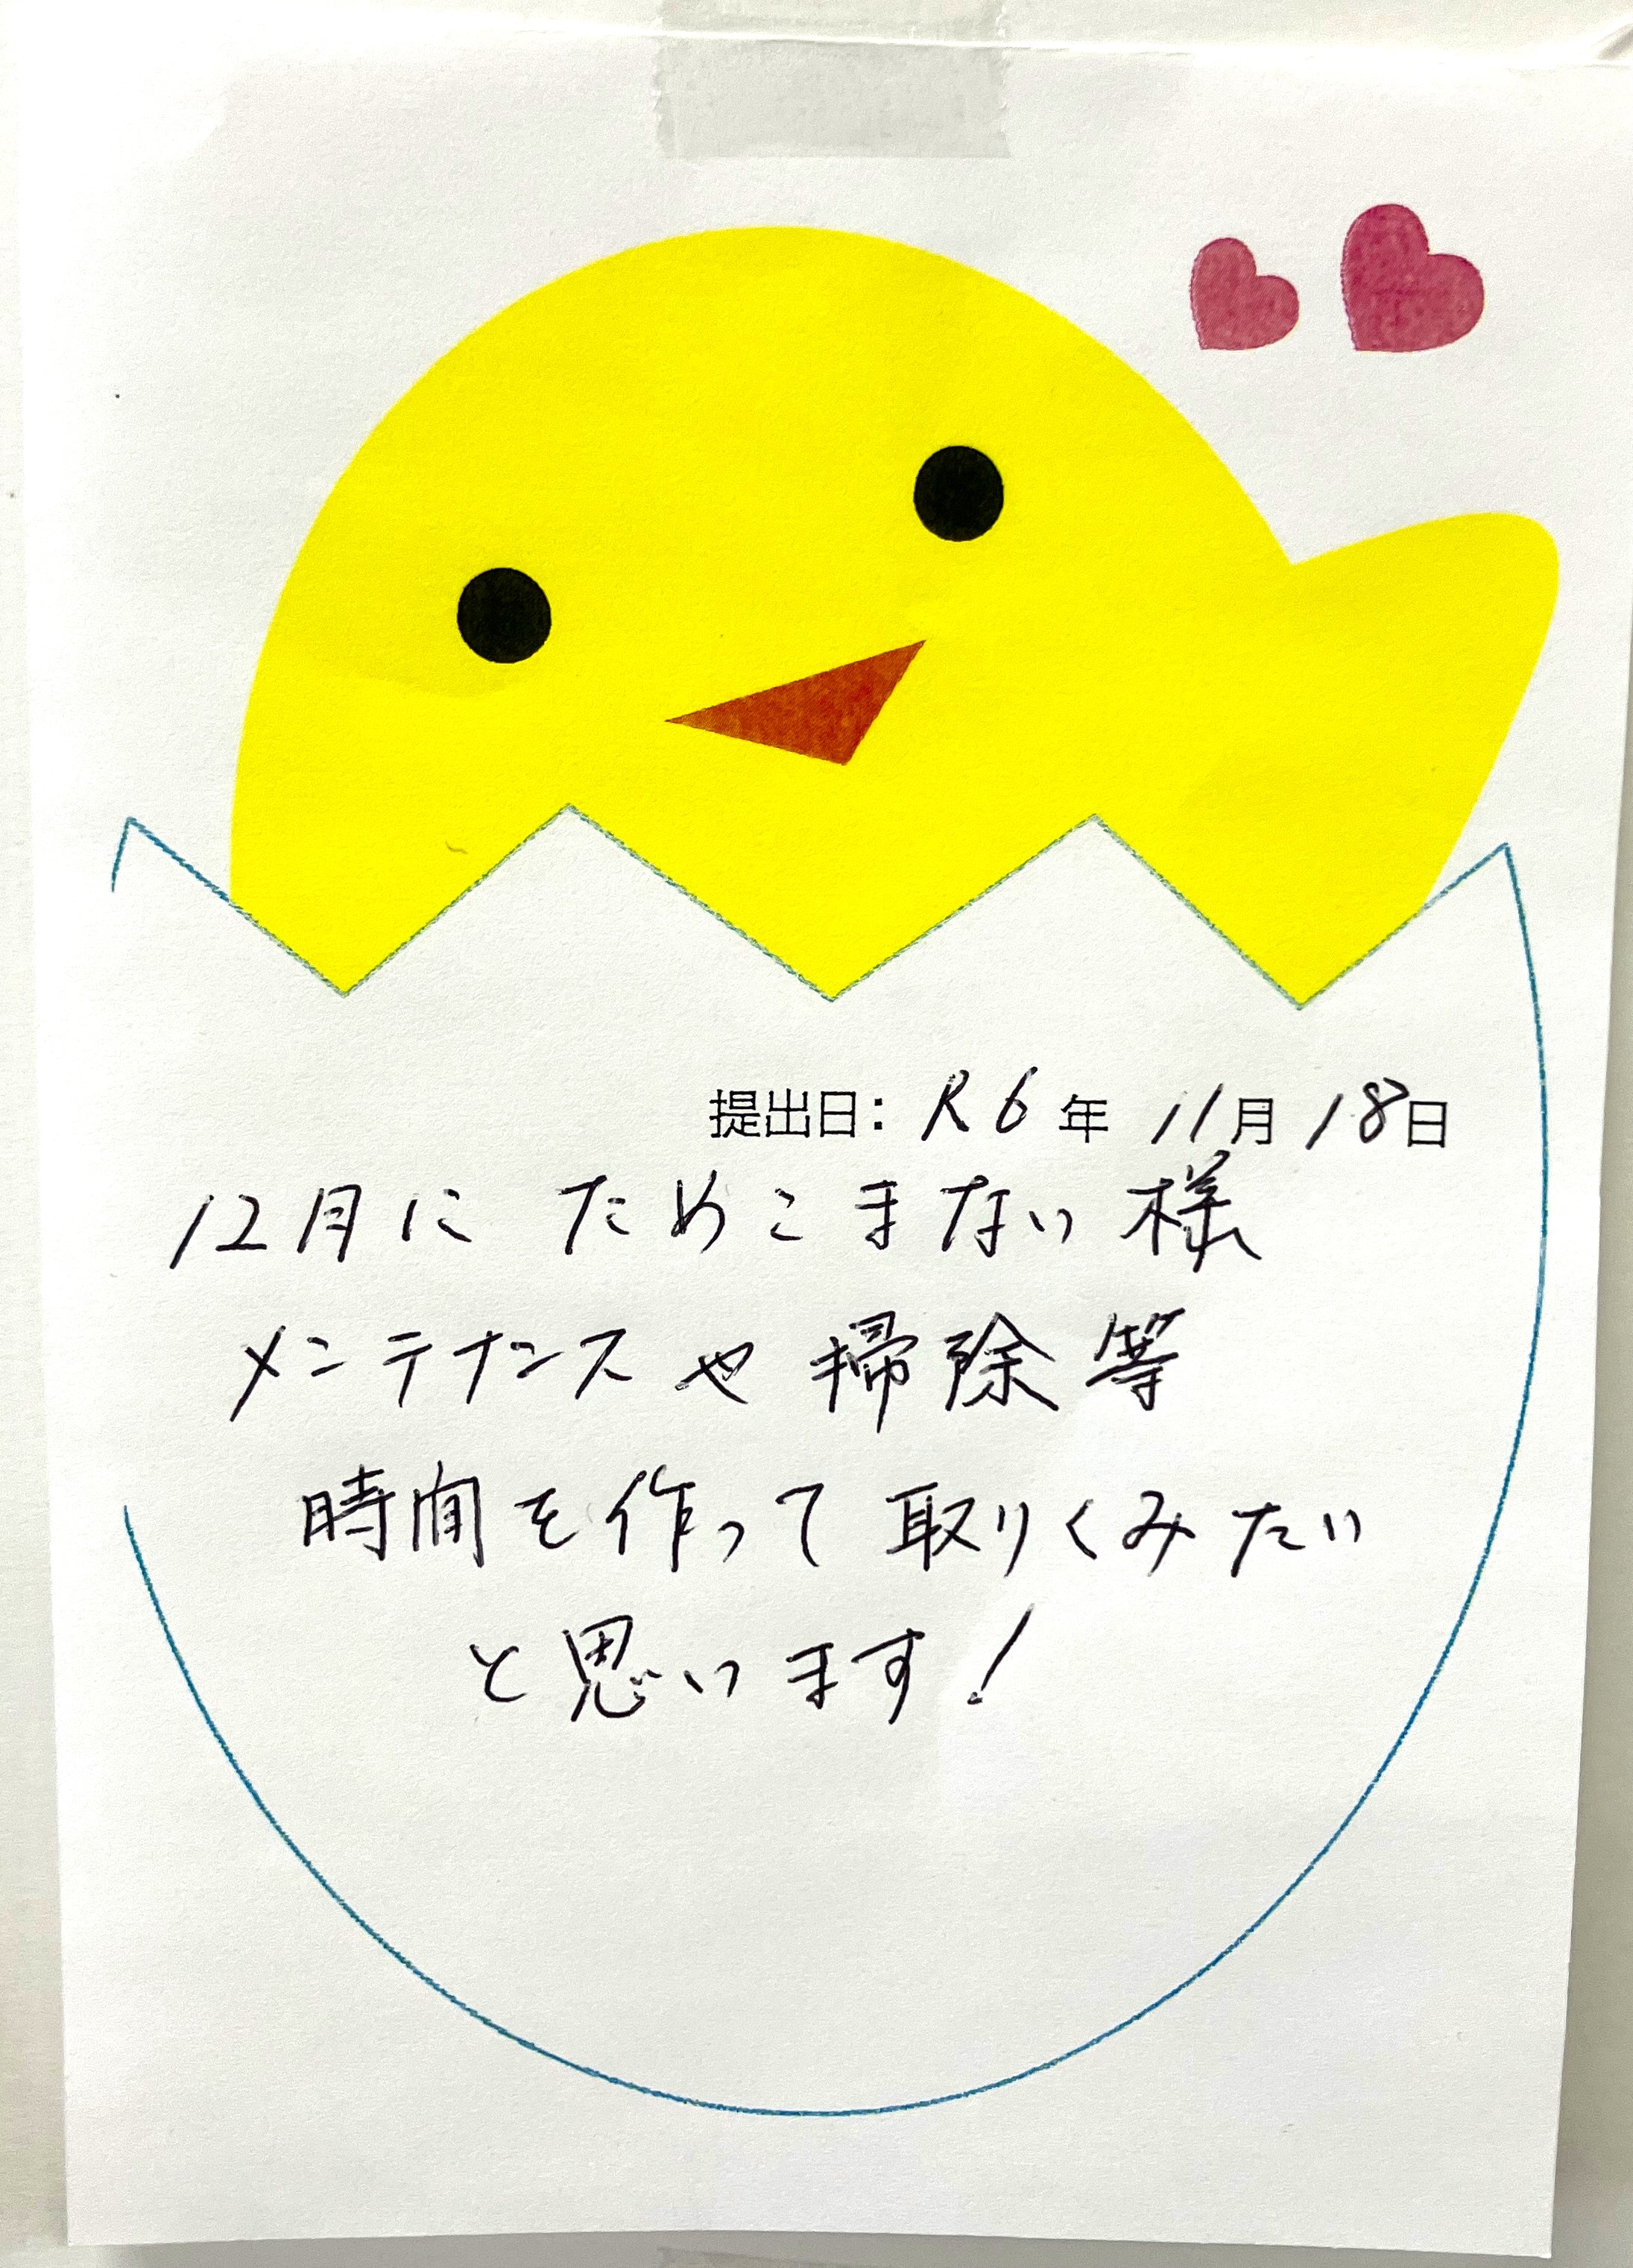 提出日: R6年 11月 18日
12月に ためこまない様
メンテナンスや掃除等
時間を作って取りくみたい
と思います!